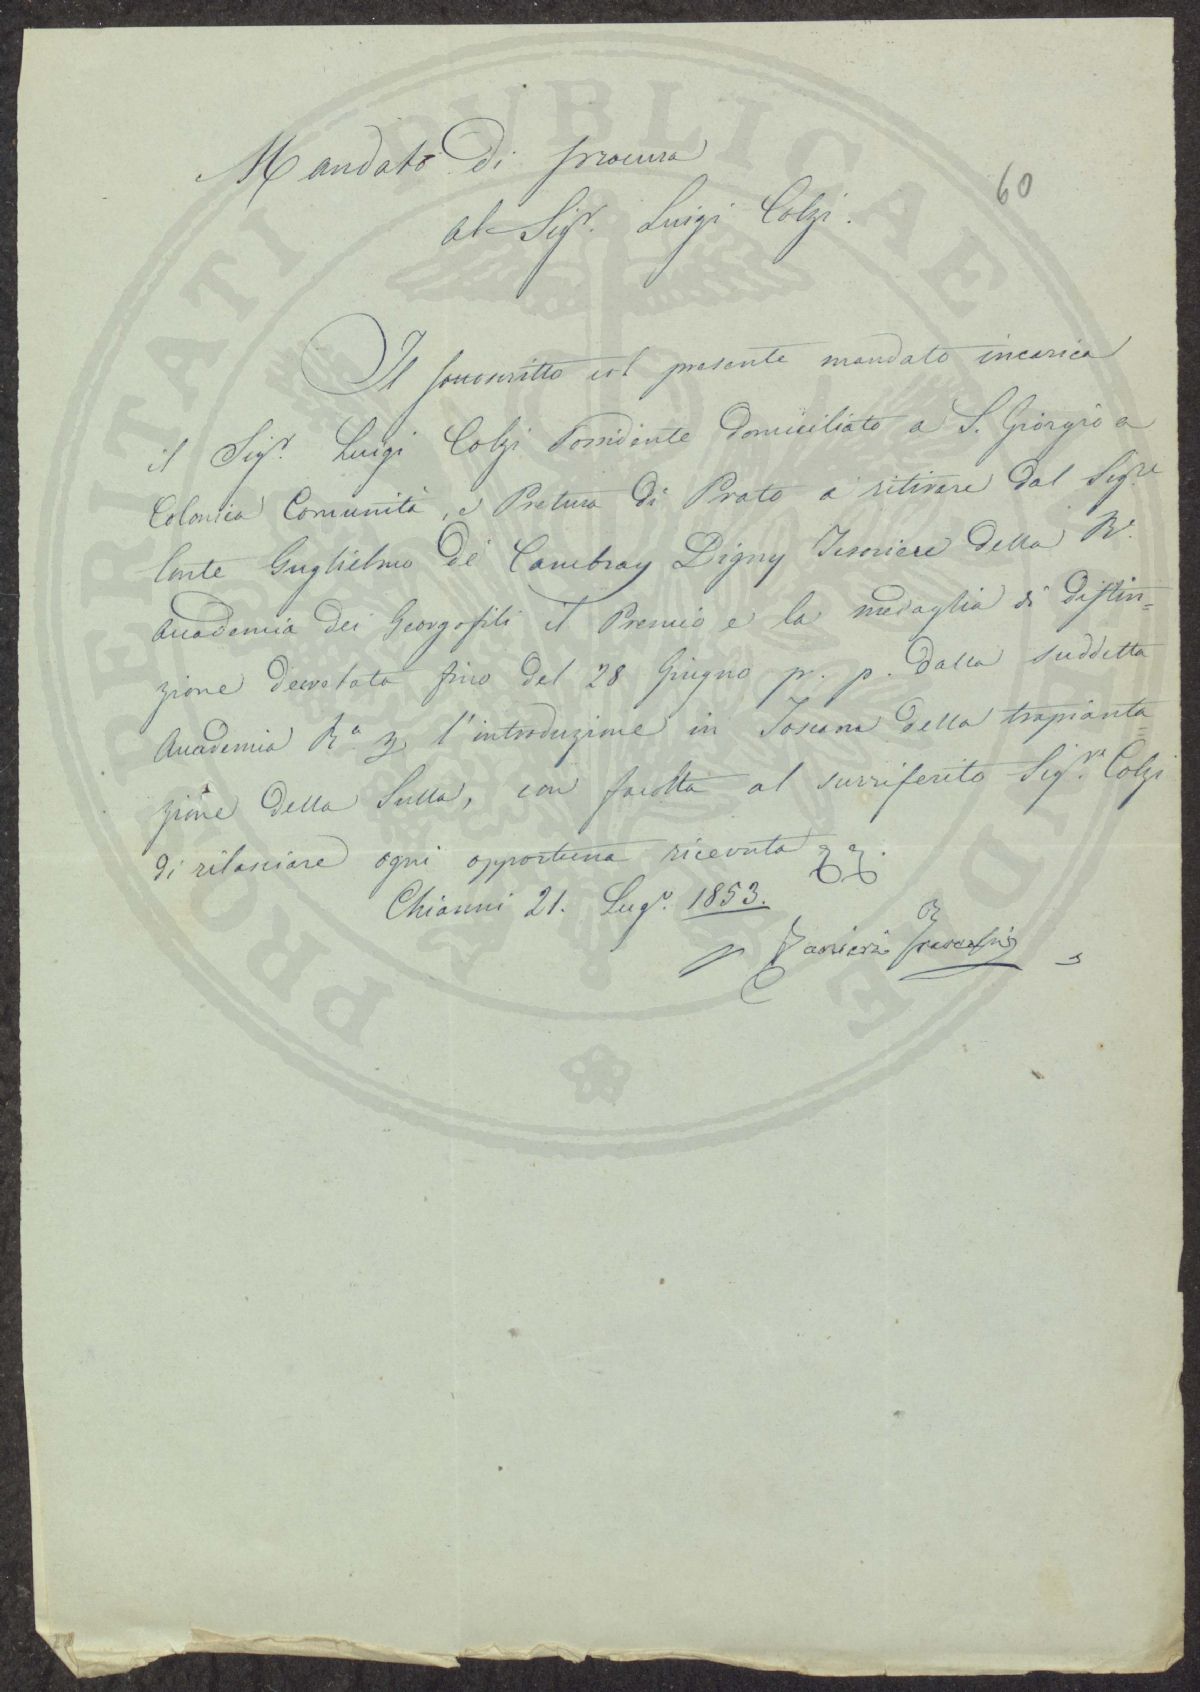 60
Mandato di procura
al Sigr. Luigi Colzi.
Il sottoscritto col presente mandato incarica
il Sigr. Luigi Colzi Possidente domiciliato a S. Giorgio a
Colonica Comunità, e Pretura di Prato a ritirare dal Sigre
Conte Guglielmo de Cambray Digny Tesoriere della R.
Accademia dei Georgofili il Premio e la medaglia di distin=
zione decretata fino del 28 Giugno p. p. dalla suddetta
Accademia Ra. p l'introduzione in Toscana della trapianta=
zione della Sulla, con facoltà al surriferito Sigre Colzi
di rilasciare ogni opportuna ricevuta
Chianni 21. Lugo. 1853.
Ranieri
PROPERITATI PUBLICAE